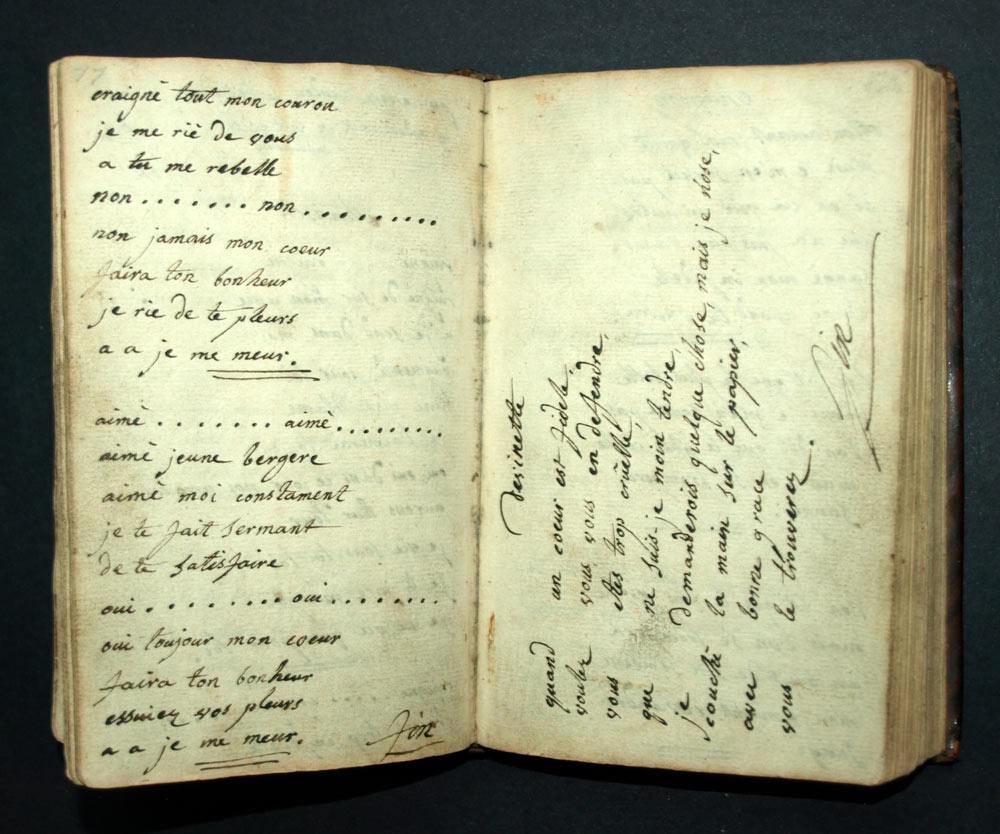 craigné tout mon courou
je me rië de vous
a tu me rebelle
non . . . . . . . non . . . . . . . . .
non jamais mon coeur
faira ton bonheur
je rie de te pleurs
a a je me meur.
aimé . . . . . . . . aimé . . . . . . . .
aimé jeune bergere
aimé moi constament
je te fait sermant
de te satisfaire
oui . . . . . . . . oui . . . . . . . .
oui toujour mon coeur
faira ton bonheur
essuiez vos pleurs
a a je me meur.
fin
quand un coeur est fidele,
voulez vous vous en deffendre,
vous etes trop cruelle,
que ne suis je moin tendre,
je demanderois quelque chose, mais je n'ose,
couchéé la main sur le papier,
avec bonne grace
vous le trouverez.
fin